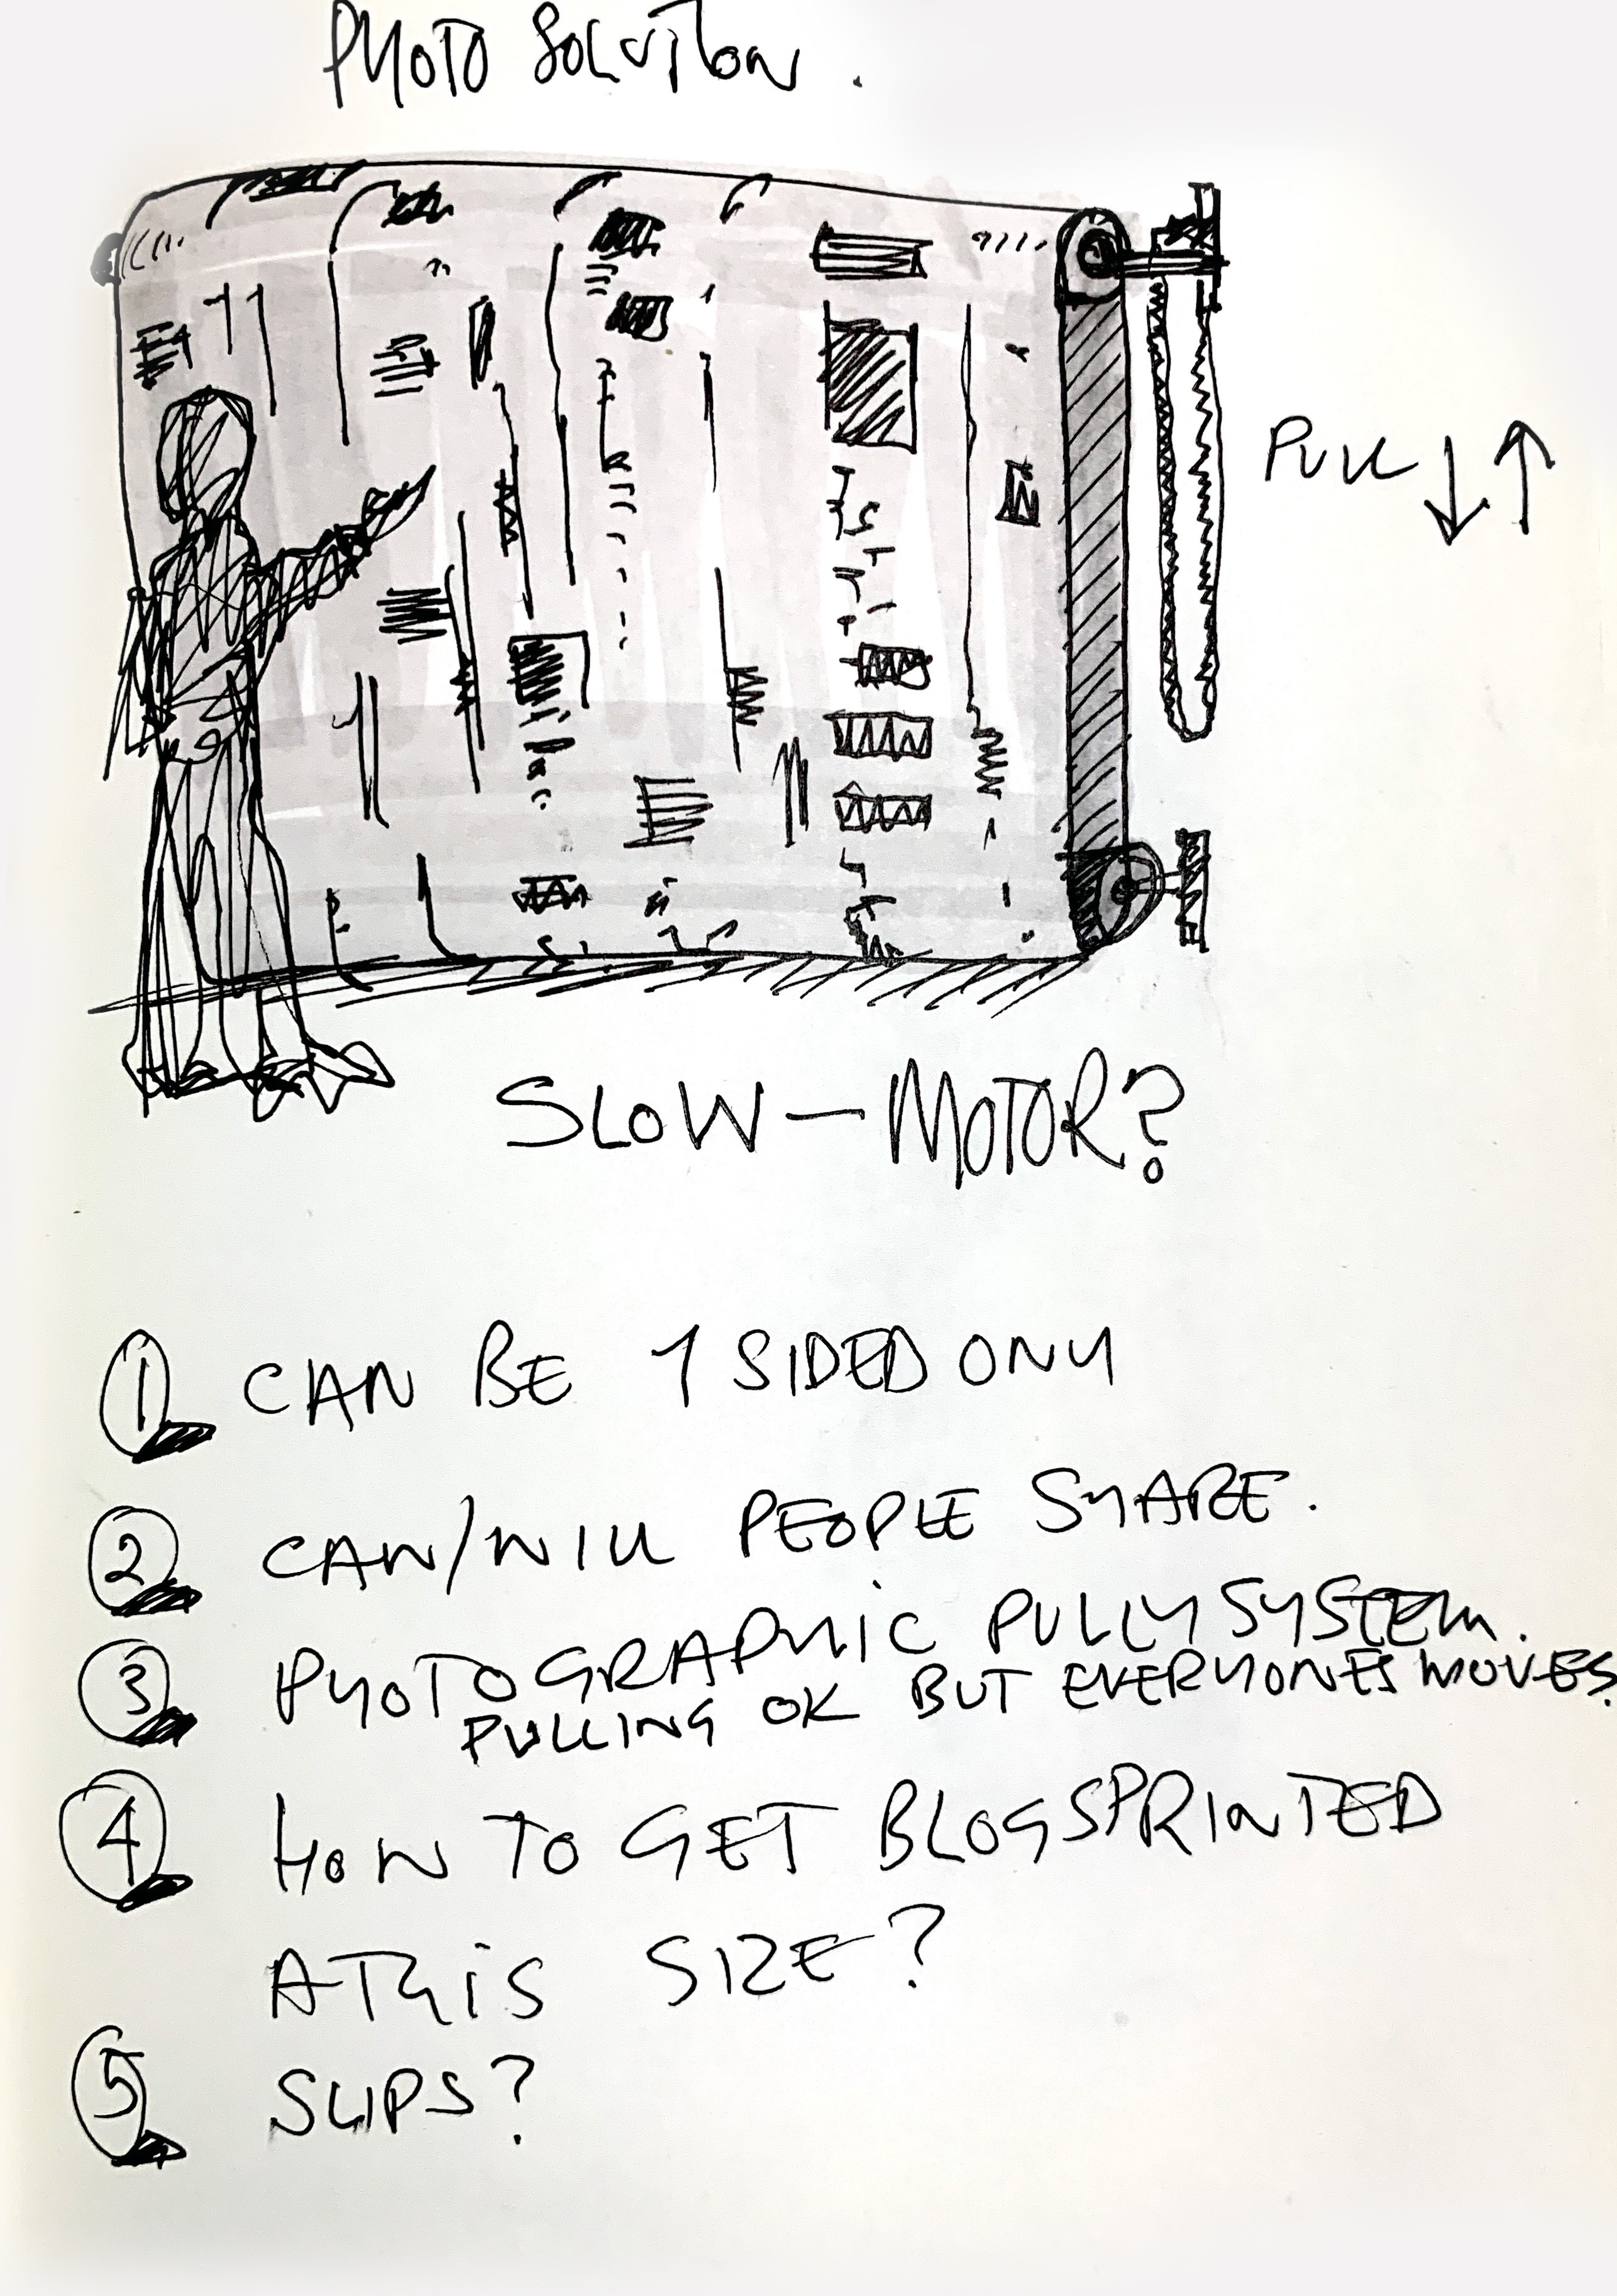 PHOTO SOLUTION.
PULL ↓↑
SLOW-MOTOR?
1 CAN BE 1 SIDED ONLY
2 CAN/WILL PEOPLE SHARE.
3 PHOTOGRAPHIC PULLY SYSTEM.
PULLING OK BUT EVERYONES MOVES.
4 HOW TO GET BLOGS PRINTED
A THIS SIZE?
5 SLIPS?